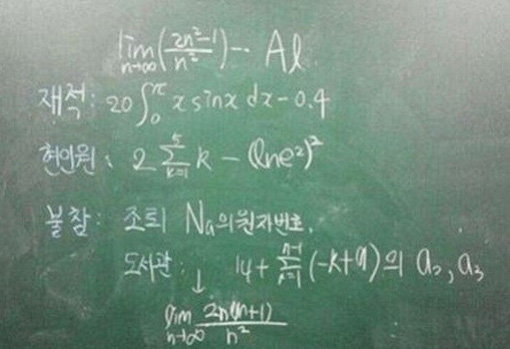 lim n→∞ (2n²-1 / n²) -- Al.
재적: 20∫₀^π x sinx dx - 0.4
현인원: 2 Σ_{k=1}^{5} k - (lne²)²
불참: 조퇴 Na의원자번호.
도서관: ↓ 14+ Σ^{n-1} (-k+9)의 a₂, a₃
lim n→∞ 2n(n+1) / n²